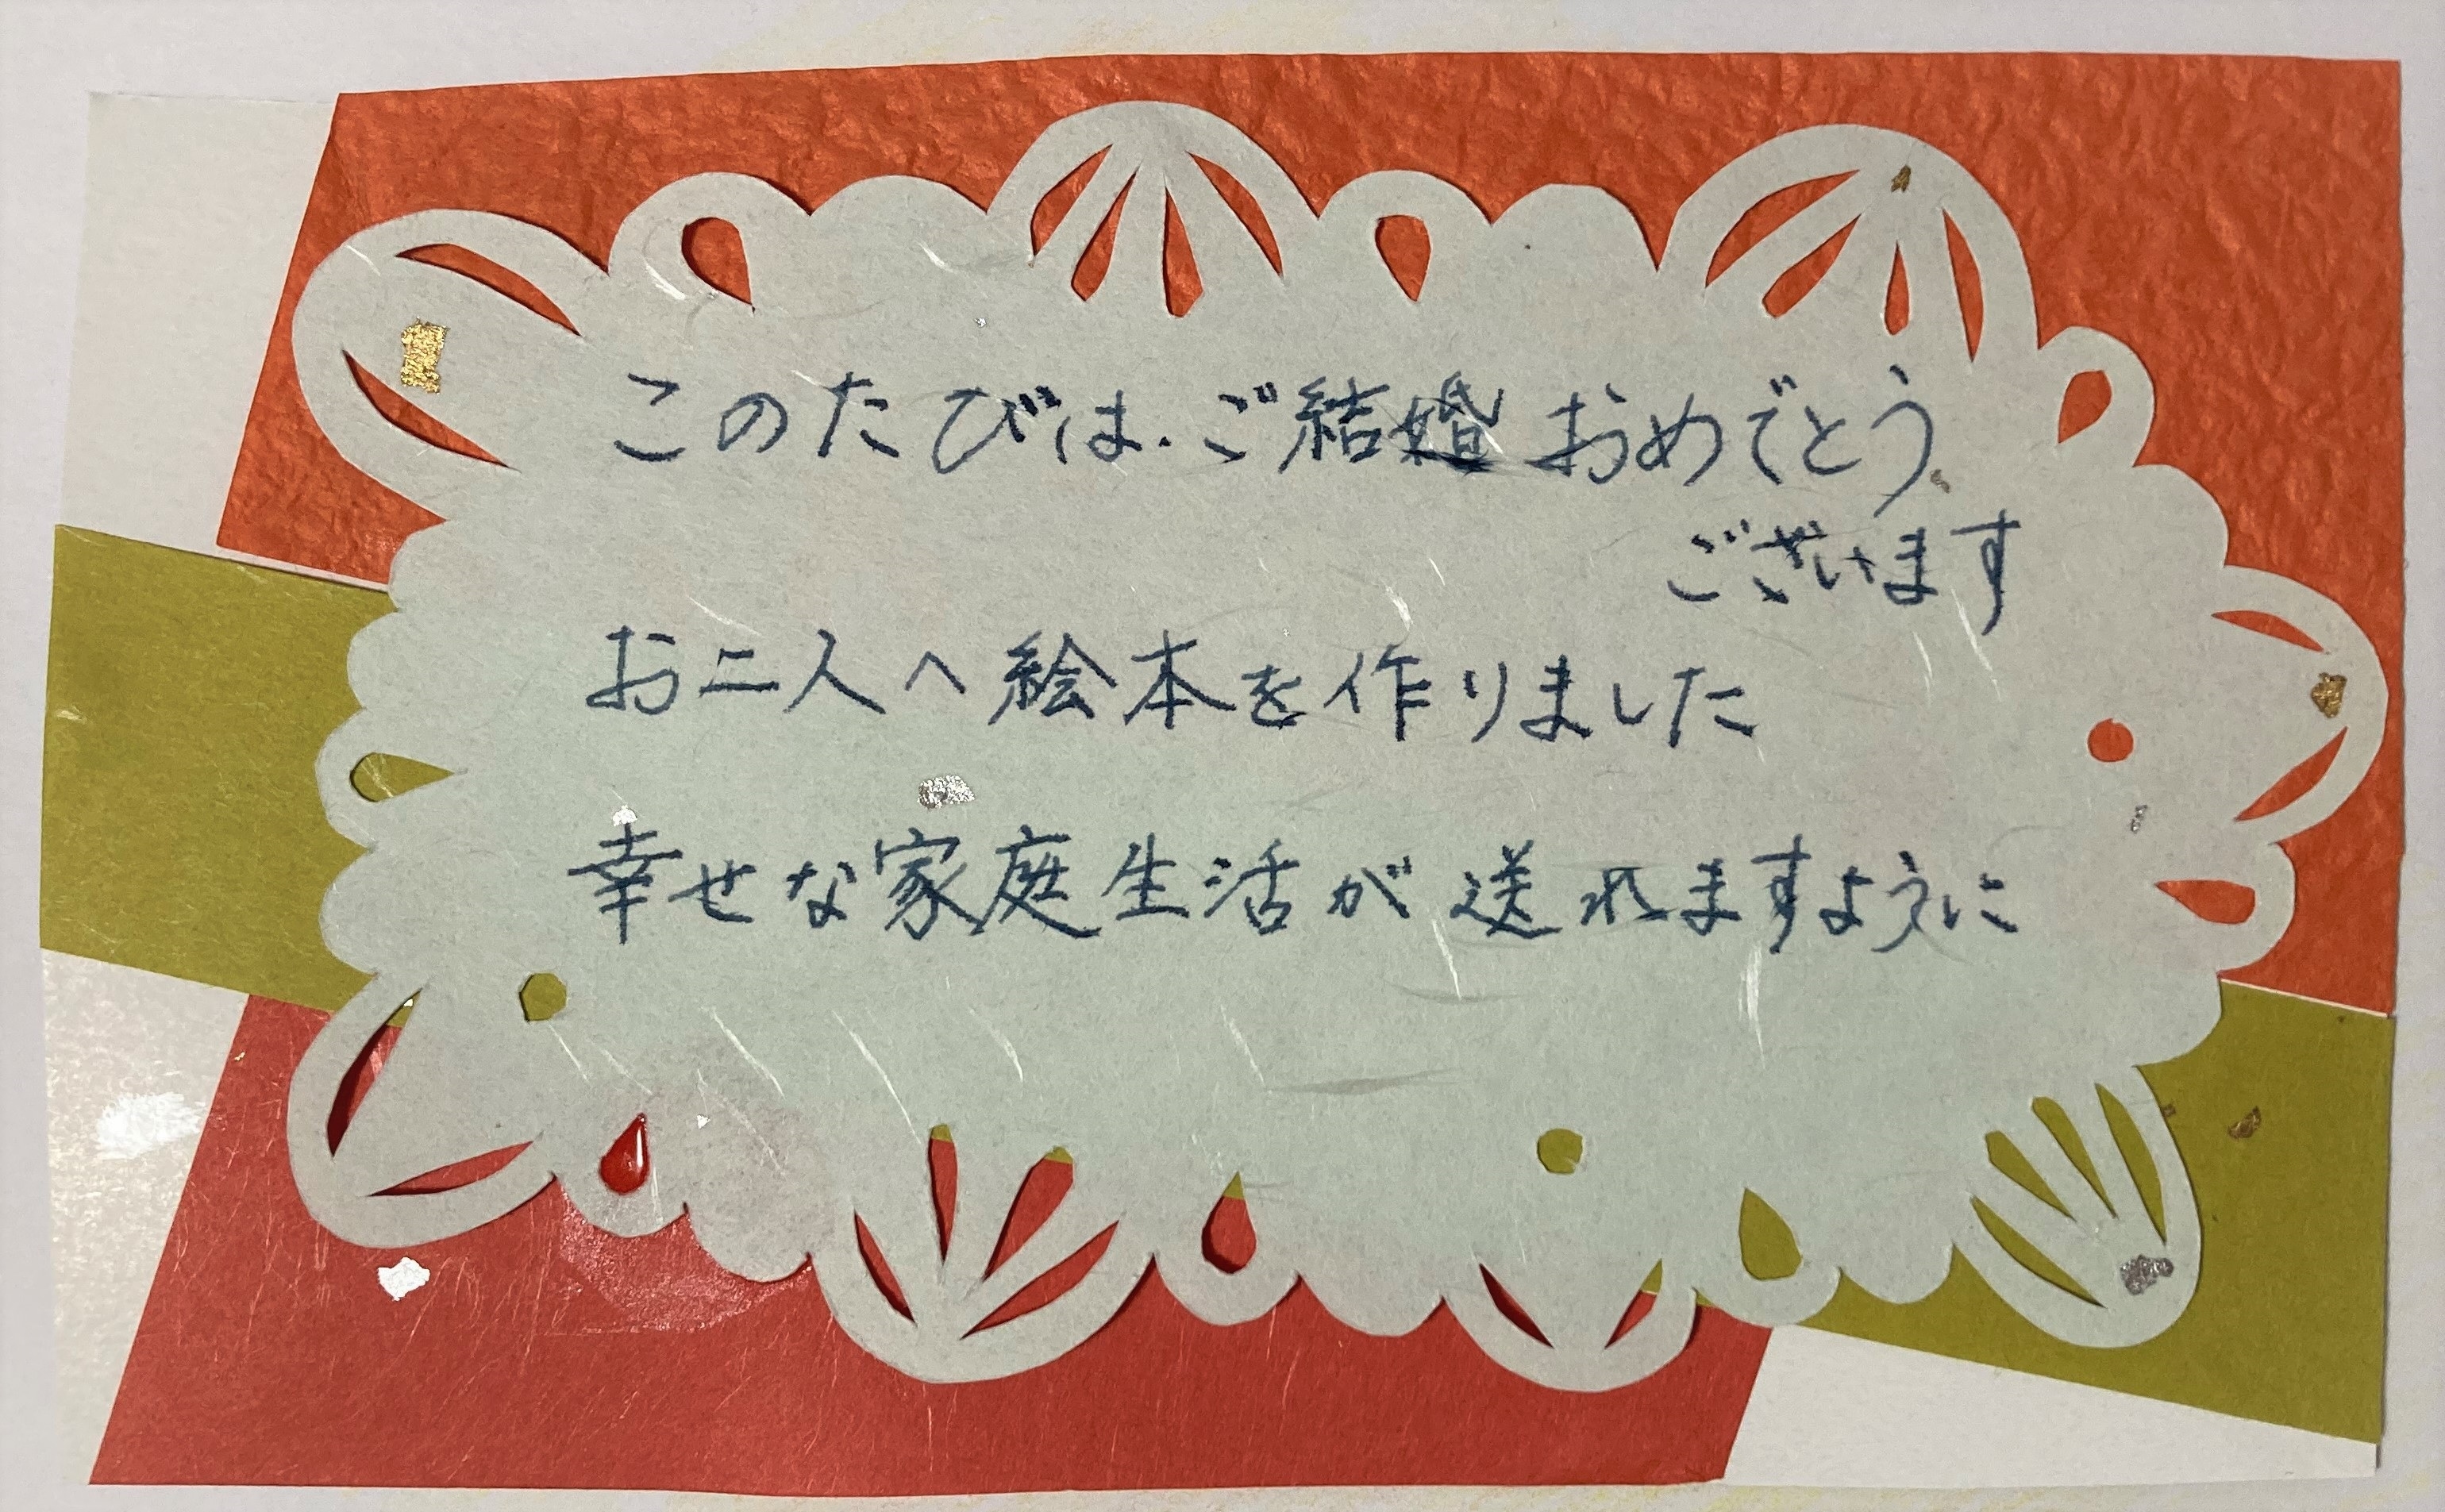 このたびは.ご結婚おめでとう
ございます
お二人へ絵本を作りました
幸せな家庭生活が送れますように